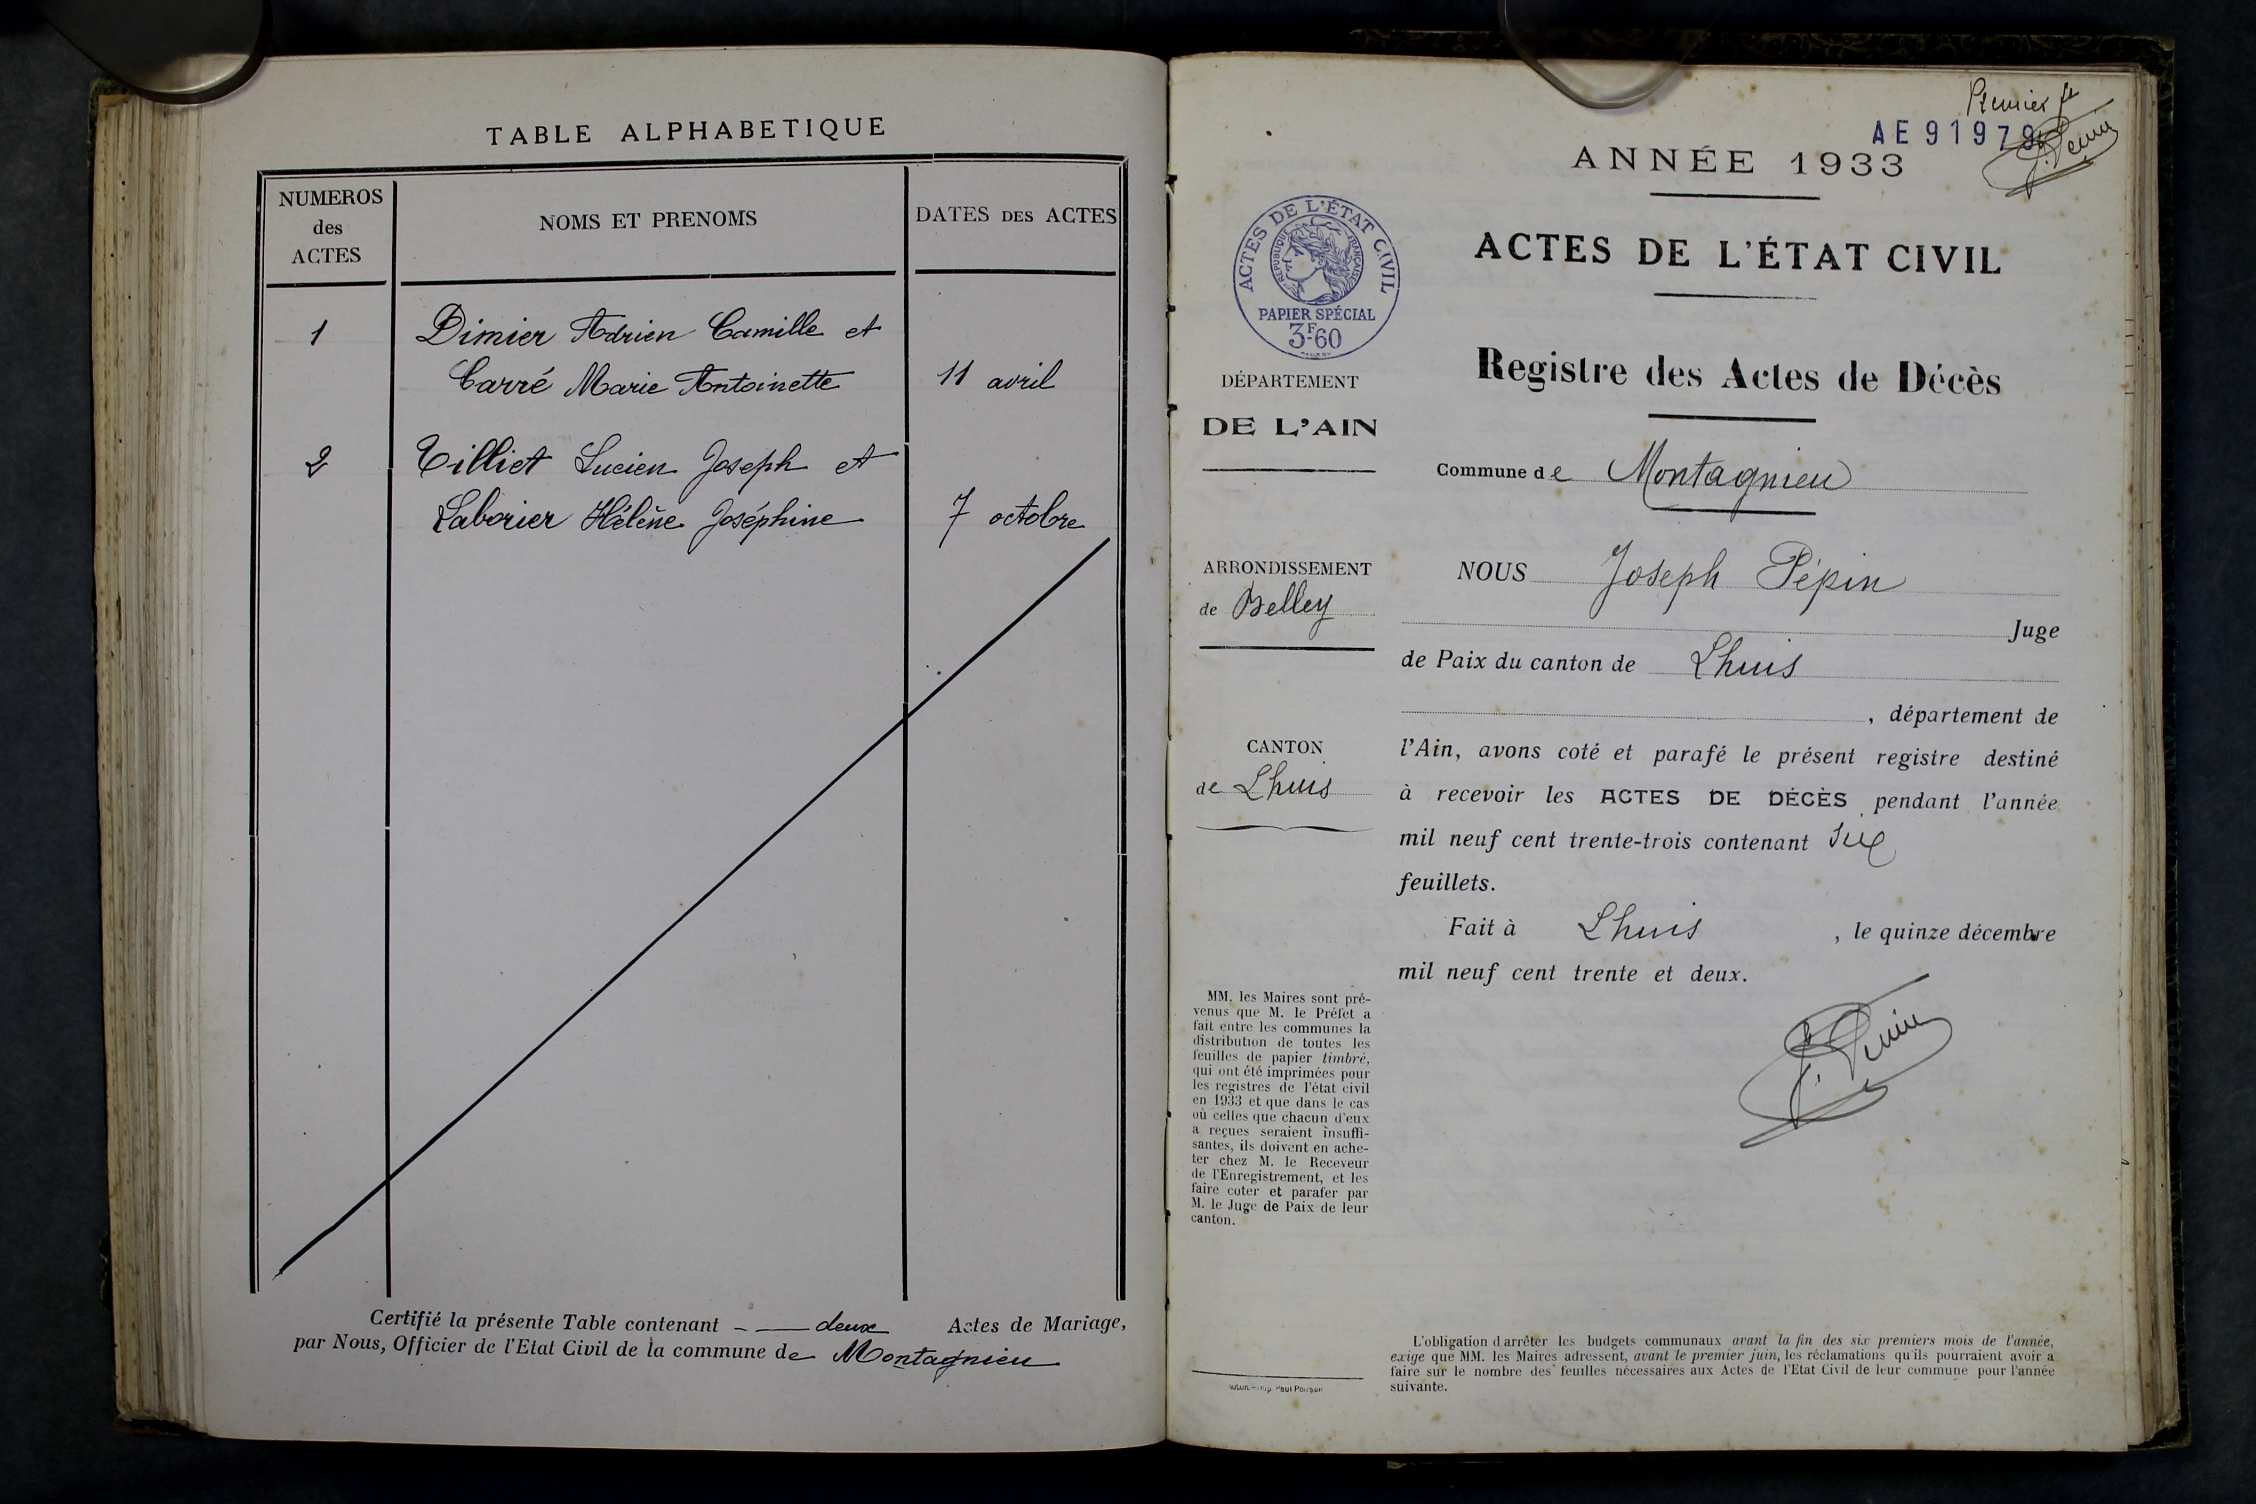 TABLE ALPHABETIQUE
NUMEROS
des
ACTES
NOMS ET PRENOMS
DATES DES ACTES
1
Dimier Adrien Camille et
Carré Marie Antoinette
11 avril
2
Tilliet Lucien Joseph et
Laborier Hélène Joséphine
7 octobre
Certifié la présente Table contenant deux Actes de Mariage,
par Nous, Officier de l'Etat Civil de la commune de Montagnieu
Premier
AE 91979
ANNÉE 1933
ACTES DE L'ÉTAT CIVIL
RÉPUBLIQUE FRANÇAISE
PAPIER SPÉCIAL
3F60
ACTES DE L'ÉTAT CIVIL
Registre des Actes de Décès
DÉPARTEMENT
DE L'AIN
Commune de Montagnieu
ARRONDISSEMENT
de Belley
NOUS Joseph Pépin
Juge
de Paix du canton de Lhuis
, département de
CANTON
de Lhuis
l'Ain, avons coté et parafé le présent registre destiné
à recevoir les ACTES DE DÉCÈS pendant l'année
mil neuf cent trente-trois contenant six
feuillets.
Fait à Lhuis , le quinze décembre
mil neuf cent trente et deux.
MM. les Maires sont pré-
venus que M. le Préfet a
fait entre les communes la
distribution de toutes les
feuilles de papier timbré,
qui ont été imprimées pour
les registres de l'état civil
en 1933 et que dans le cas
où celles que chacun d'eux
a reçues seraient insuffi-
santes, ils doivent en ache-
ter chez M. le Receveur
de l'Enregistrement, et les
faire coter et parafer par
M. le Juge de Paix de leur
canton.
L'obligation d'arrêter les budgets communaux avant la fin des six premiers mois de l'année,
exige que MM. les Maires adressent, avant le premier juin, les réclamations qu'ils pourraient avoir a
faire sur le nombre des feuilles nécessaires aux Actes de l'Etat Civil de leur commune pour l'année
suivante.